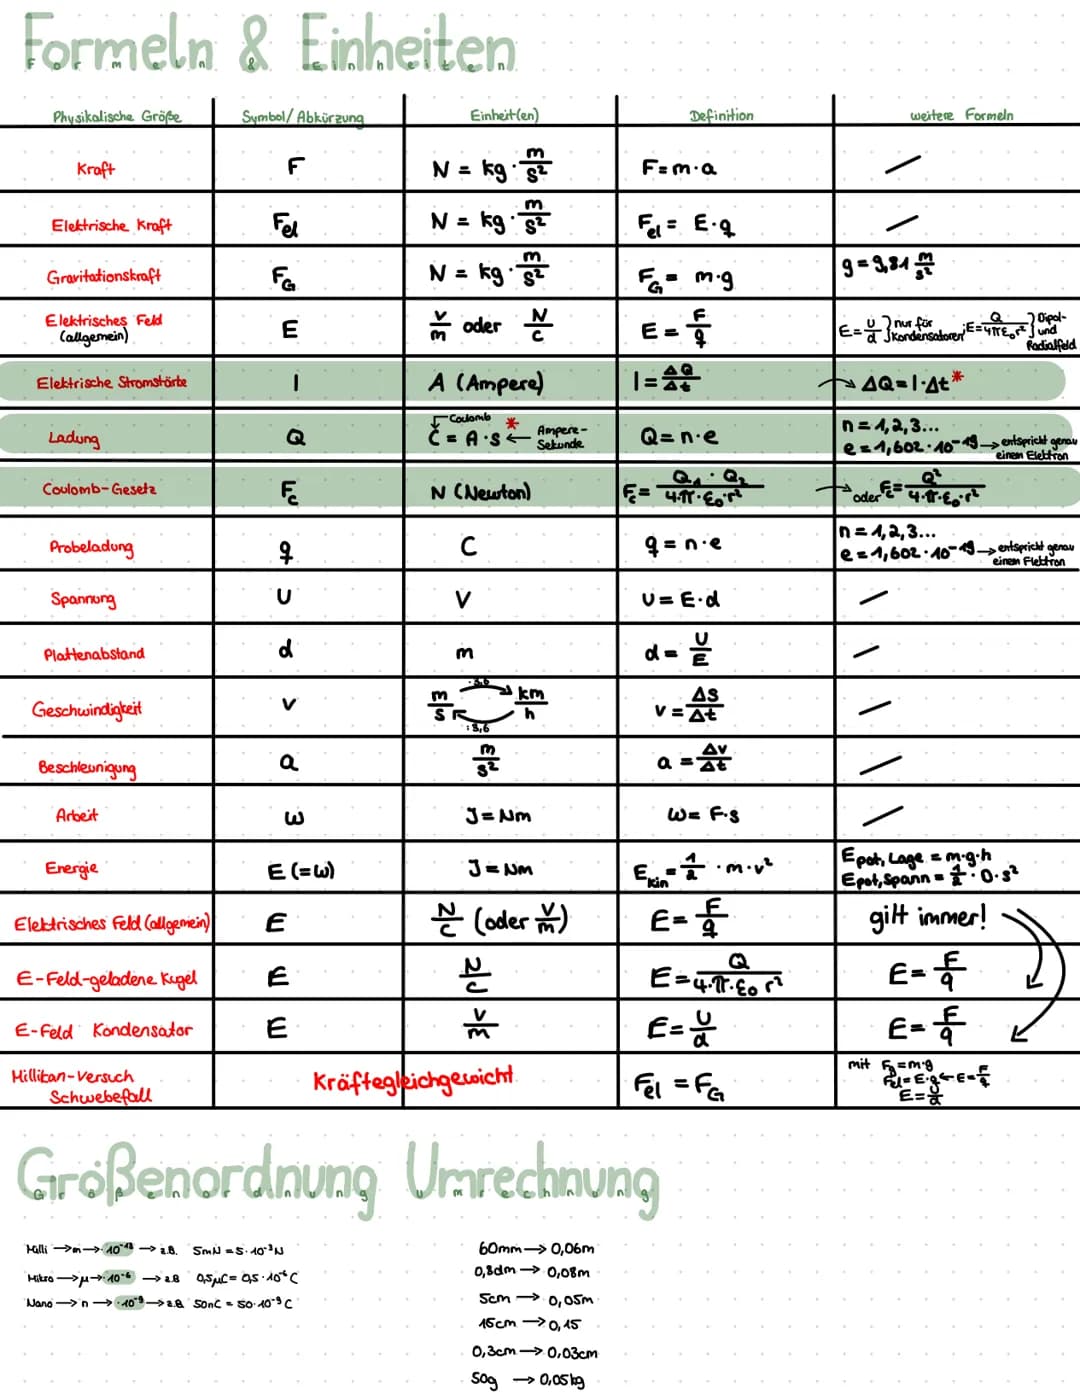 Formeln & Einheiten
Physikalische Größe Symbol/Abkürzung Einheit(en) Definition weitere Formeln
Kraft F N = kg · m/s² F = m · a /
Elektrische Kraft Fel N = kg · m/s² Fel = E · q /
Gravitationskraft FG N = kg · m/s² FG = m · g g = 9,81 m/s²
Elektrisches Feld (allgemein) E V/m oder N/C E = F/q E = U/d } nur für Kondensatoren; E = Q/4πε₀r² } Dipol- und Radialfeld
Elektrische Stromstärke I A (Ampere) I = ΔQ/Δt → ΔQ = I · Δt *
Ladung Q Coulomb C = A · s * ← Ampere-Sekunde Q = n · e n = 1,2,3... e = 1,602 · 10⁻¹⁹ → entspricht genau einem Elektron
Coulomb-Gesetz Fc N (Newton) Fc = Q₁ · Q₂/4·π·ε₀·r² → oder Fc = Q²/4·π·ε₀·r²
Probeladung q C q = n · e n = 1,2,3... e = 1,602 · 10⁻¹⁹ → entspricht genau einem Elektron
Spannung U V U = E · d /
Plattenabstand d m d = U/E /
Geschwindigkeit v m/s ·3,6 → km/h :3,6 v = Δs/Δt /
Beschleunigung a m/s² a = Δv/Δt /
Arbeit W J = Nm W = F · s /
Energie E (=W) J = Nm Ekin = 1/2 · m · v² Epot, Lage = m·g·h Epot, Spann = 1/2 · D · s²
Elektrisches Feld (allgemein) E N/C (oder V/m) E = F/q gilt immer!
E-Feld-geladene Kugel E N/C E = Q/4·π·ε₀ r² E = F/q
E-Feld Kondensator E V/m E = U/d E = F/q
Millikan-Versuch Schwebefall Kräftegleichgewicht Fel = FG mit Fg = m·g Fel = E·q ← E = F/q E = U/d
Größenordnung Umrechnung
Milli → m → 10⁻¹³ → z.B. 5mN = 5 · 10⁻³ N
Mikro → μ → 10⁻⁶ → z.B 0,5μC = 0,5 · 10⁻⁶ C
Nano → n → ·10⁻⁹ → z.B. 50nC = 50 · 10⁻⁹ C
60mm → 0,06m
0,8dm → 0,08m
5cm → 0,05m
15cm → 0,15
0,3cm → 0,03cm
50g → 0,05kg